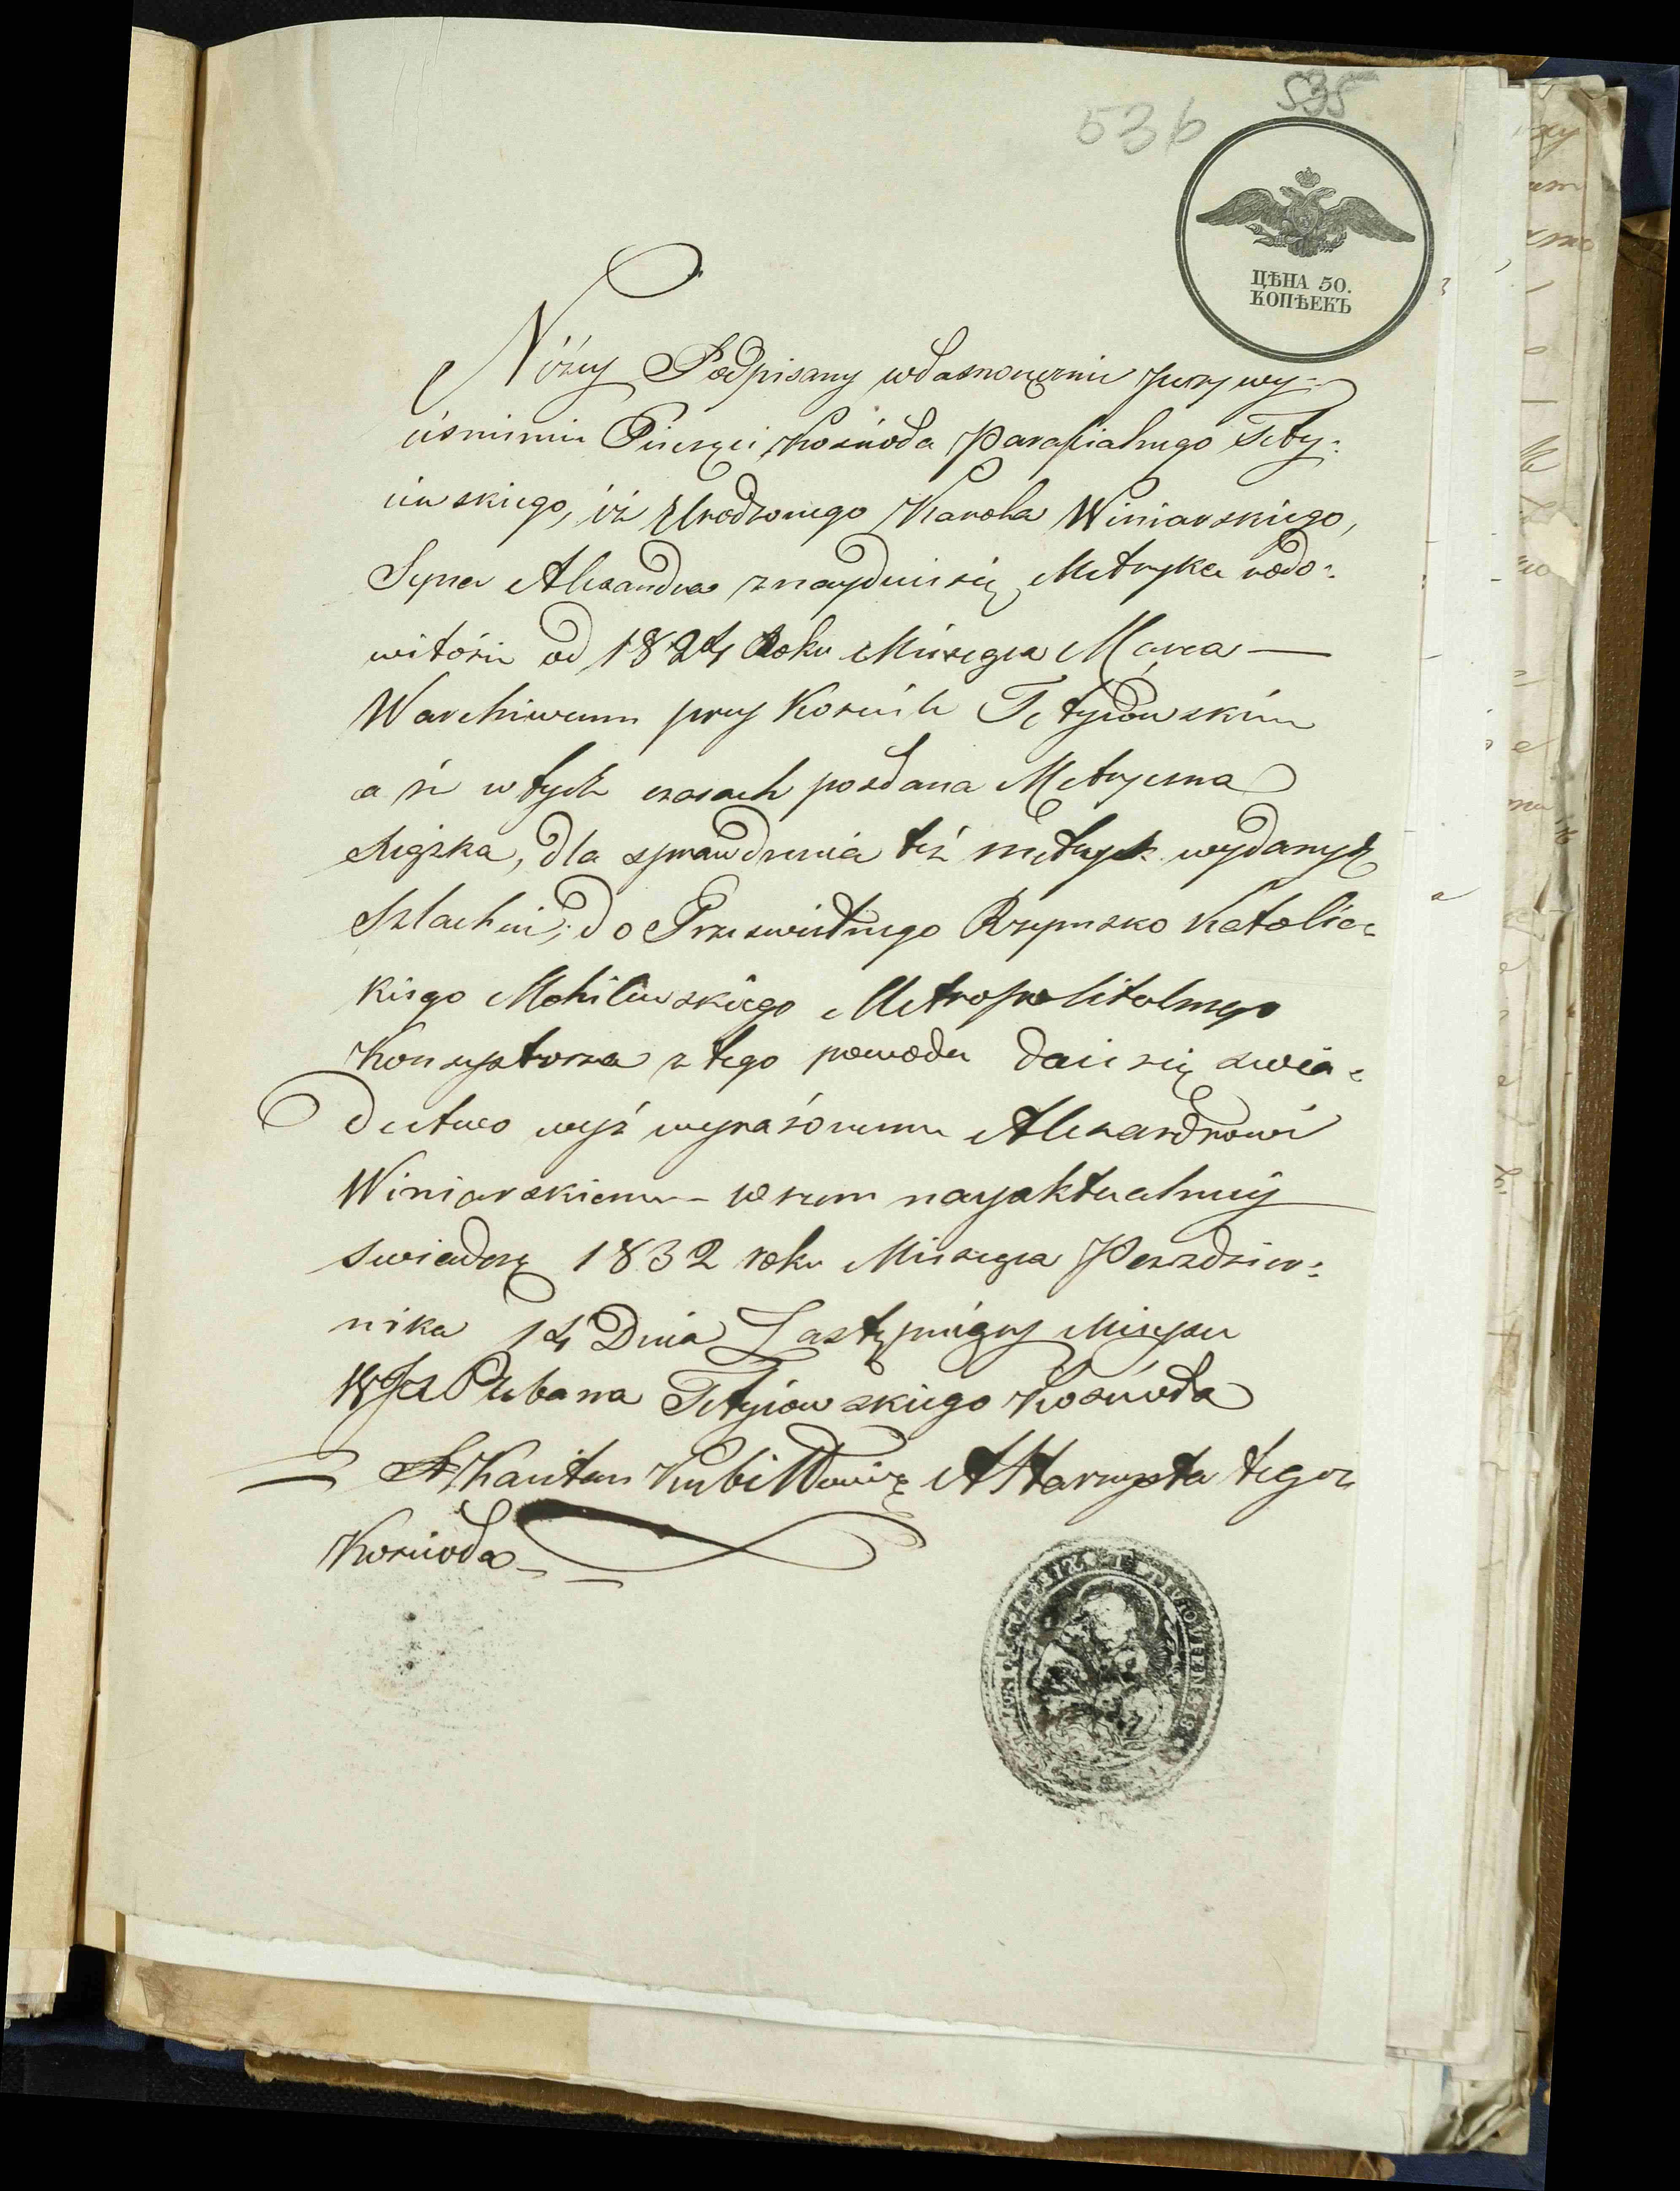 535
536
ЦѢНА 50.
КОПѢЕКЪ
Niżey Podpisany własnoręcznie przy wy-
ciśnieniu Pieczęci Kościoła Parafialnego Tety:
iewskiego, iż Urodzonego Karola Winiarskiego,
Syna Alexandra znayduie się Metryka rodo:
witości od 1824 Roku Miesiąca Marca —
W archiwum przy Kościele Tetyiowskim
a że w tych czasach posłana Metryczna
Xiążka, dla sprawdzenia też metryk wydanych
Szlachcie, do Prześwietnego Rzymsko Katolic:
kiego Mohilewskiego Metropolitalnego
Konsystorza z tego powodu daie się swia:
dectwo wyż wyrażonemu Alexandrowi
Winiarskiemu — w czem nayaktualniey
swiadczę 1832 roku Miesiąca Pazdzier:
nika 14 Dnia Zastępuiący mieysce
WJX Plebana Tetyiowskiego Kościoła
X Kantun Altarzysta tegoż
Kościoła